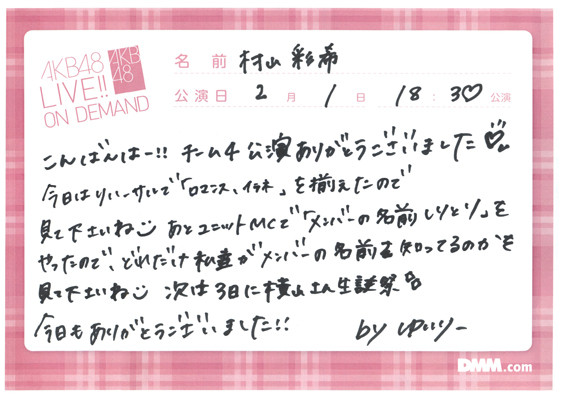 AKB48
LIVE!!
ON DEMAND
AKB
48
名前 村山彩希
公演日 2月1日 18:30♡公演
こんばんはー!! チーム4公演ありがとうございました♡
今日はりぃーサルで「ロマンス、イラネ」を揃えたので
見て下さいね☺ あとユニットMCで「メンバーの名前しりとり」を
やったので、どれだけ私達がメンバーの名前を知ってるのかを
見て下さいね☺ 次は3日に横山さん生誕祭
今日もありがとうございました!! by ゆいりー
DMM.com